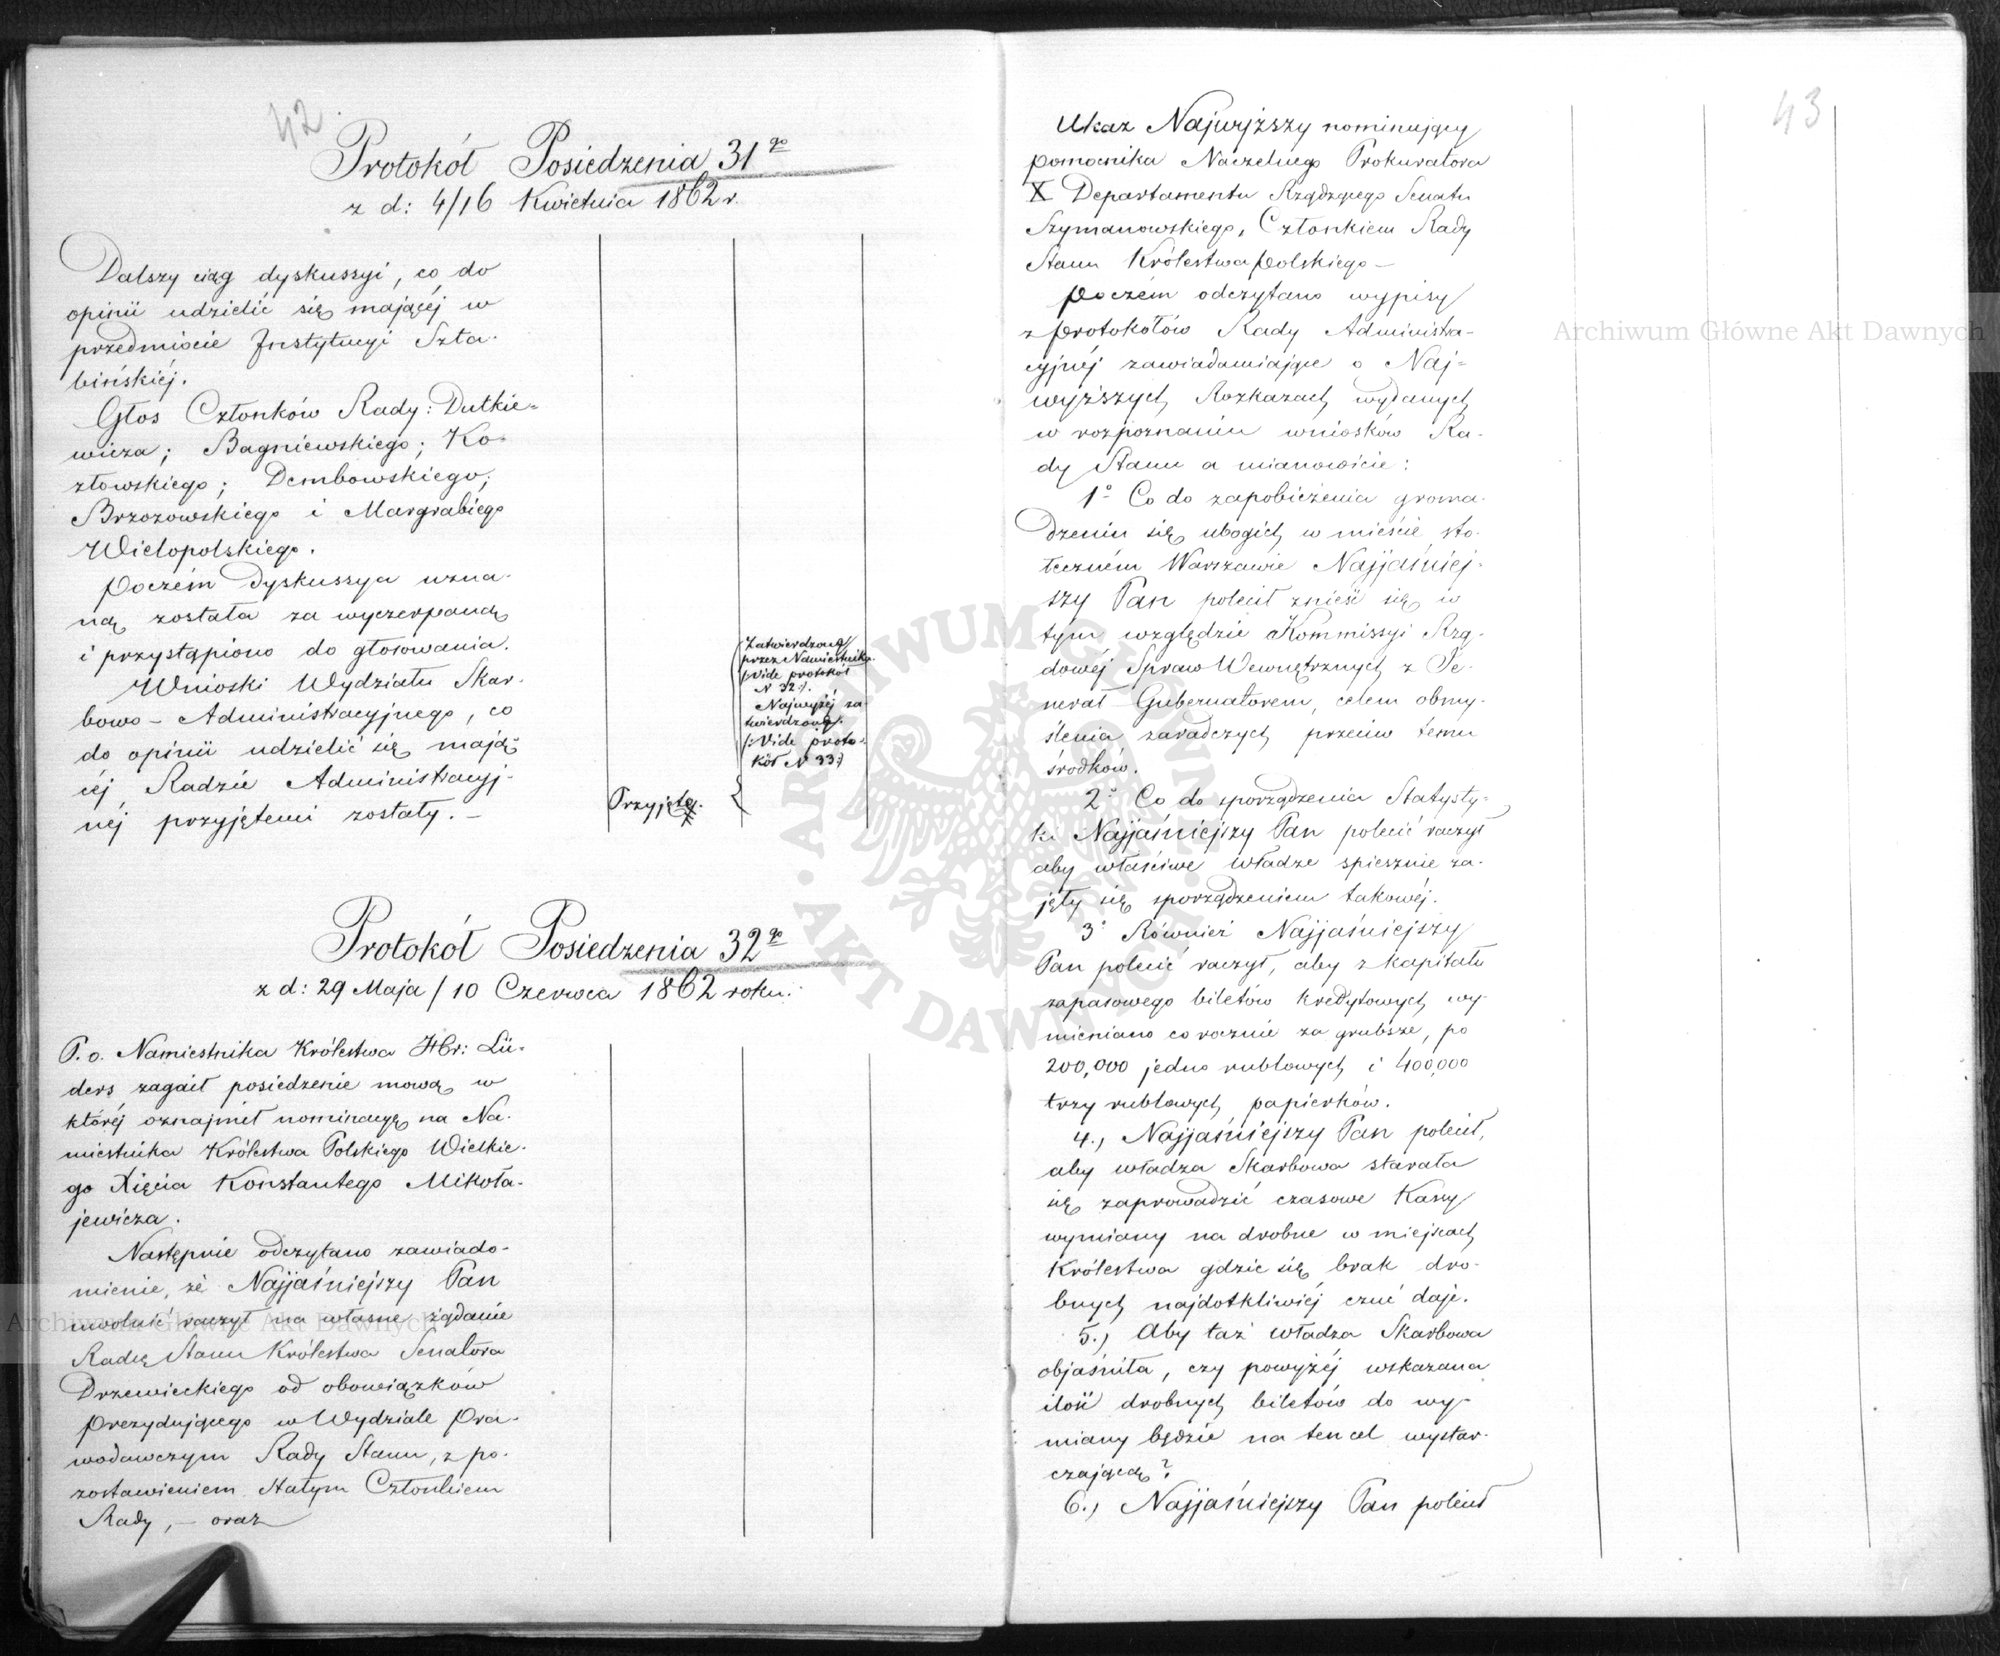 42.
Protokół Posiedzenia 31go
z d: 4/16 Kwietnia 1862 r.
Dalszy ciąg dyskussyi, co do
opinii udzielić się mającéj w
przedmiocie Instytucyi Szta-
bińskiéj.
Głos Członków Rady: Dutkie-
wicza; Bagniewskiego; Ko-
złowskiego; Dembowskiego;
Brzozowskiego i Margrabiego
Wielopolskiego.
Poczém dyskussya uzna-
ną została za wyczerpaną
i przystąpiono do głosowania.
Wnioski Wydziału Skar-
bowo-Administracyjnego, co
do opinii udzielić się mają-
céj Radzie Administracyj-
néj przyjętemi zostały. –
Przyjęte.
Zatwierdzone
przez Namiestnika
/:Vide protokół
N 32:/.
Najwyżéj za-
twierdzone.
/:Vide proto-
kół N 33:/
Protokół Posiedzenia 32go
z d: 29 Maja / 10 Czerwca 1862 roku.
P. o. Namiestnika Królestwa Hr: Lü-
ders zagaił posiedzenie mową w
któréj oznajmił nominacyę na Na-
miestnika Królestwa Polskiego Wielkie-
go Xięcia Konstantego Mikoła-
jewicza.
Następnie odczytano zawiado-
mienie, że Najjaśniejszy Pan
uwolnić raczył na własne żądanie
Radcę Stanu Królestwa Senatora
Drzewieckiego od obowiązków
Prezydującego w Wydziale Pra-
wodawczym Rady Stanu, z po-
zostawieniem Stałym Członkiem
Rady, – oraz
43
Ukaz Najwyższy nominujący
pomocnika Naczelnego Prokuratora
X Departamentu Rządzącego Senatu
Szymanowskiego, Członkiem Rady
Stanu Królestwa Polskiego –
Poczém odczytano wypisy
z Protokołów Rady Administra-
cyjnéj zawiadamiające o Naj-
wyższych Rozkazach wydanych
w rozpoznaniu wniosków Ra-
dy Stanu a mianowicie:
1o Co do zapobieżenia groma-
dzeniu się ubogich w mieście sto-
łeczném Warszawie Najjaśniej-
szy Pan polecił znieść się w
tym względzie Kommissyi Rzą-
dowéj Spraw Wewnętrznych z Je-
nerał-Gubernatorem, celem obmy-
ślenia zaradczych przeciw temu
środków.
2o Co do sporządzenia Statysty-
ki Najjaśniejszy Pan polecić raczył
aby właściwe władze spiesznie za-
jęły się sporządzeniem takowéj.
3o Również Najjaśniejszy
Pan polecić raczył, aby z kapitału
zapasowego biletów kredytowych wy-
mieniano corocznie za grubsze, po
200,000 jedno rublowych i 400,000
trzy rublowych papierków.
4., Najjaśniejszy Pan polecił,
aby władza Skarbowa starała
się zaprowadzić czasowe Kassy
wymiany na drobne w miejscach
Królestwa gdzie się brak dro-
bnych najdotkliwiéj czuć daje.
5., Aby taż władza Skarbowa
objaśniła, czy powyżéj wskazana
ilość drobnych biletów do wy-
miany będzie na ten cel wystar-
czającą?
6., Najjaśniejszy Pan polecił
Archiwum Główne Akt Dawnych
Archiwum Główne Akt Dawnych
ARCHIWUM GŁÓWNE · AKT DAWNYCH ·